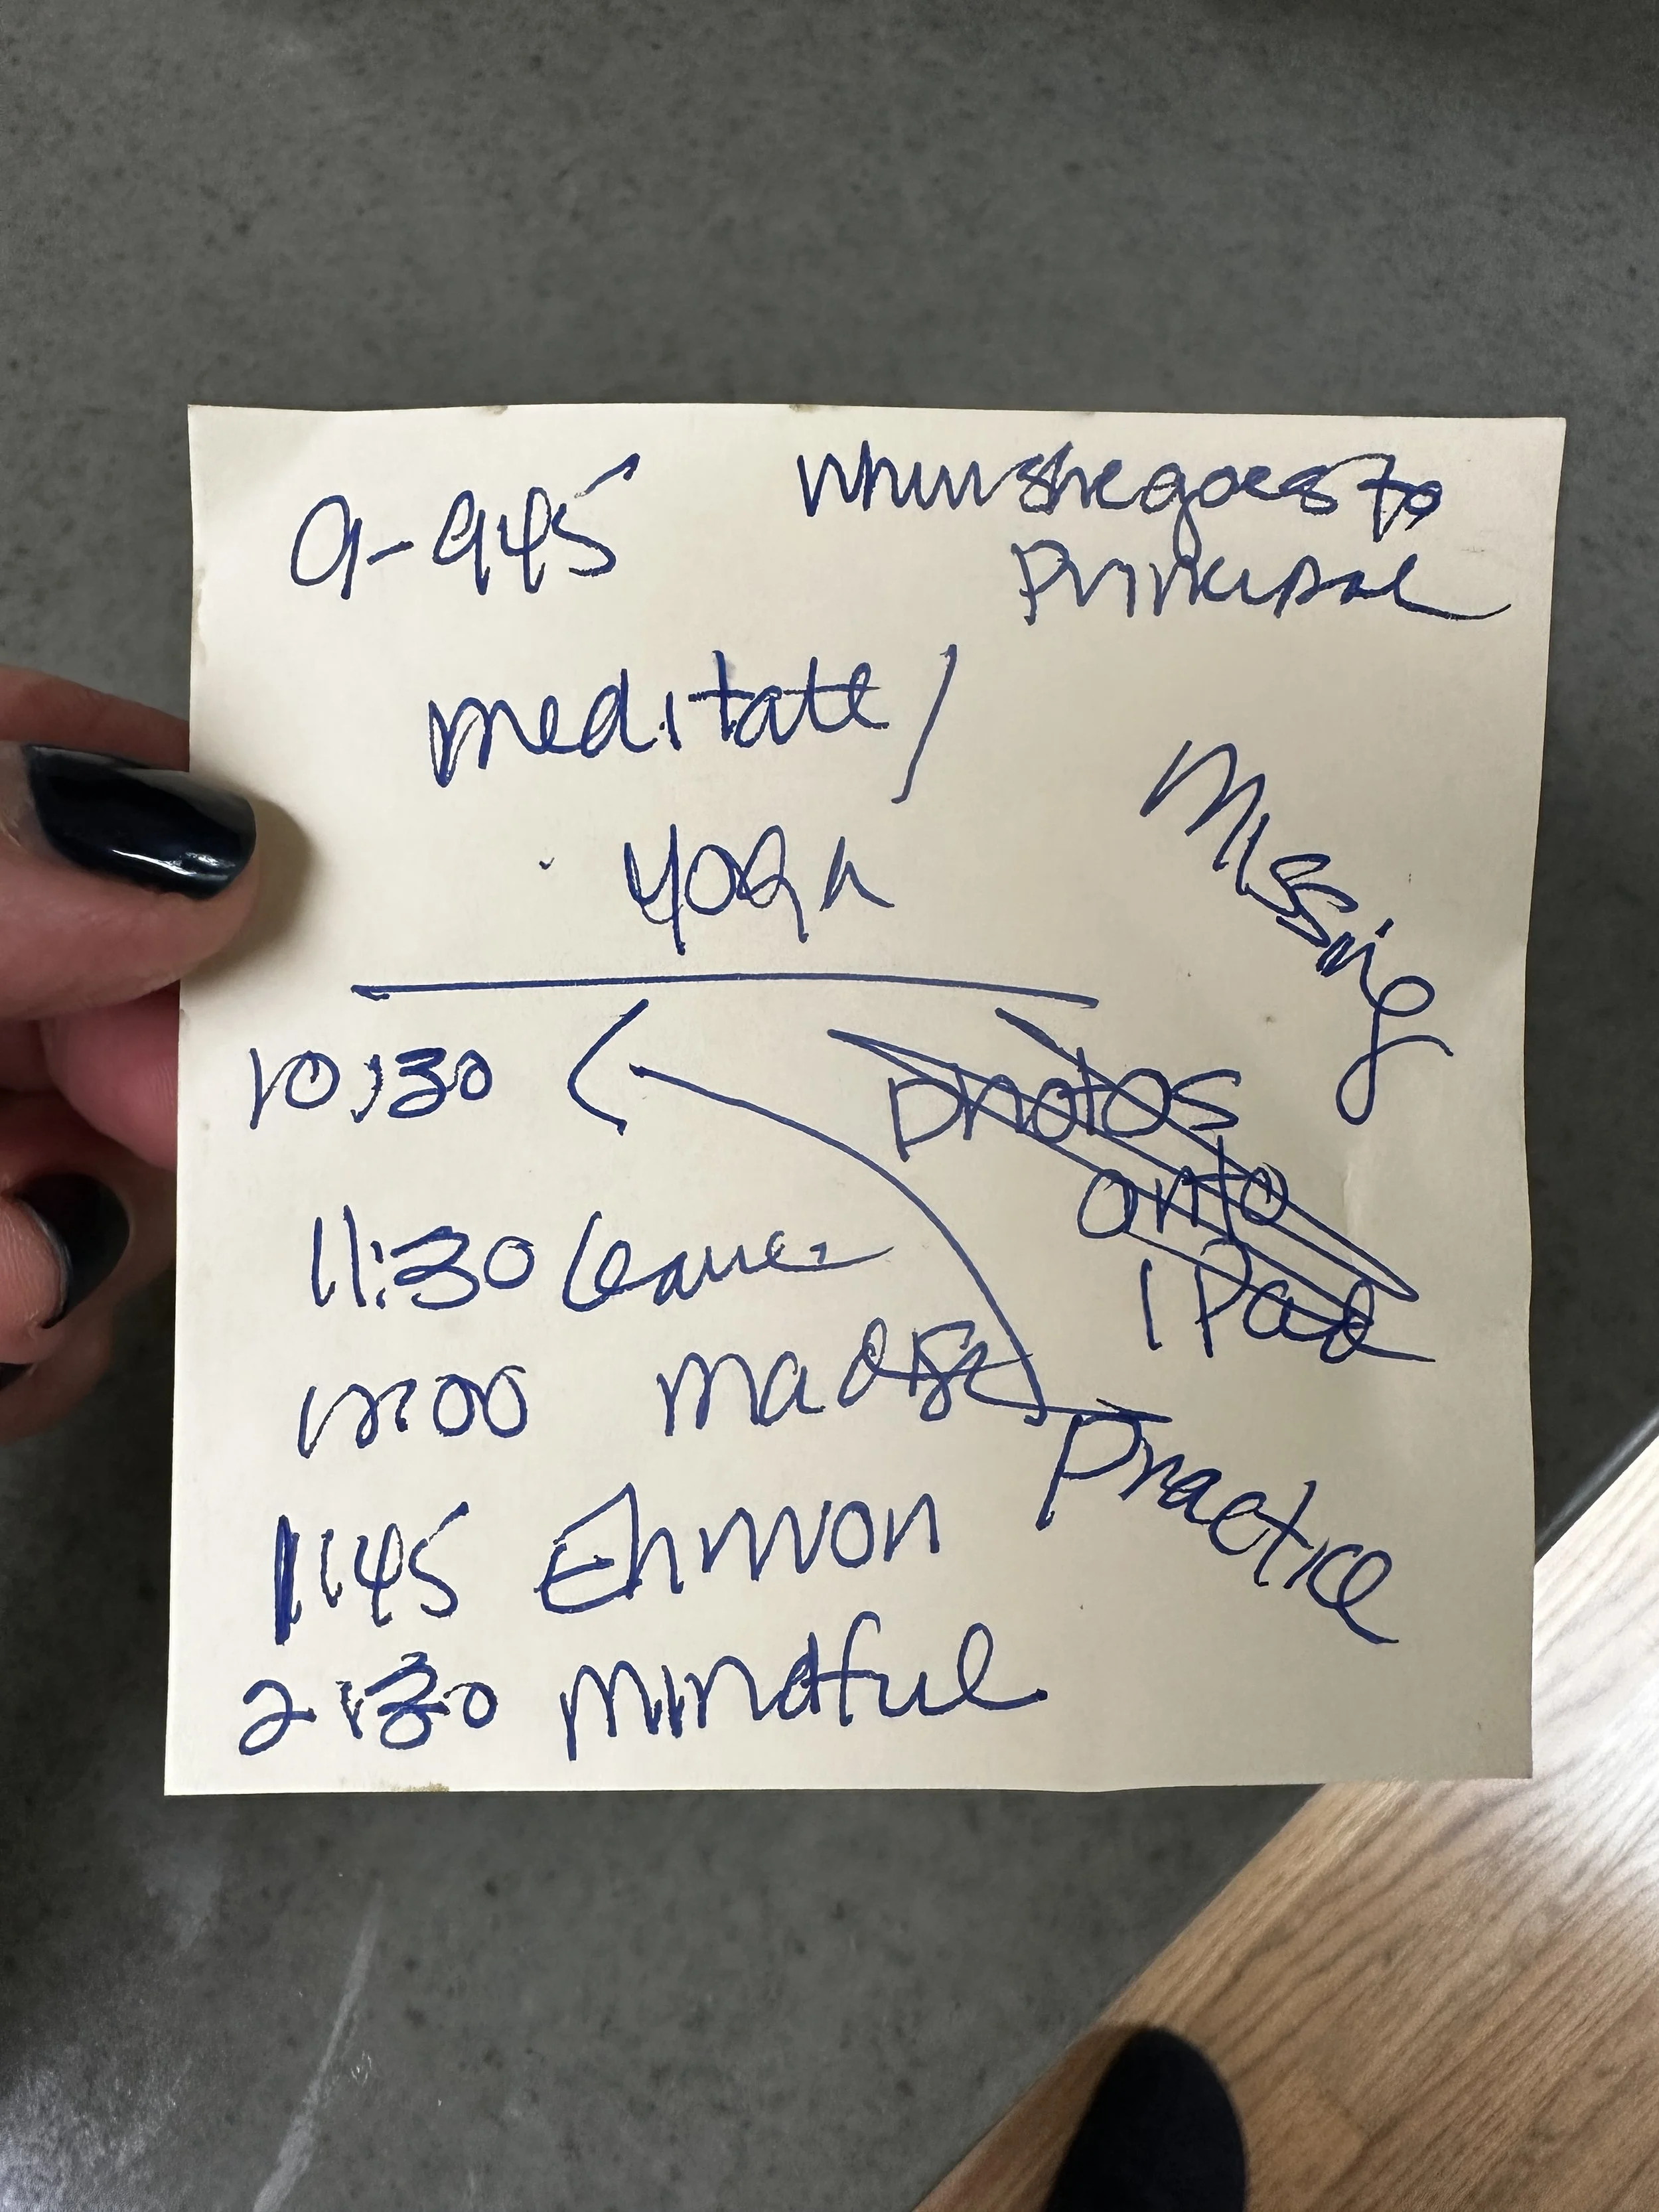 9-945
when she goes to
Principal
meditate/
yoga
Missing
10:30
photos
onto
iPad
11:30 leave
12:00
Practice
1:45
2:30 mindful